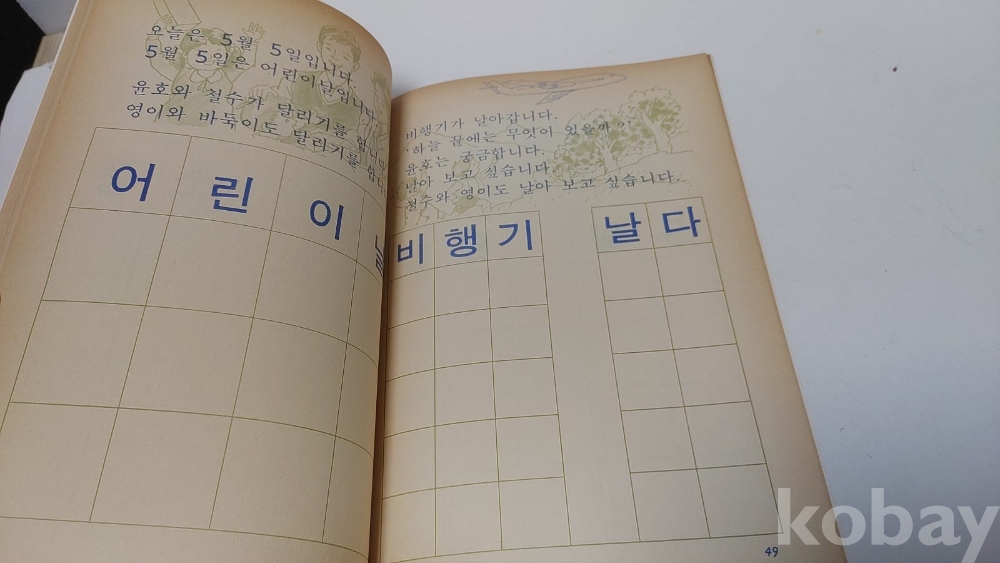 오늘은 5월 5일입니다.
5월 5일은 어린이날입니다.
윤호와 철수가 달리기를 합니다.
영이와 바둑이도 달리기를 합
어 린 이 날
비행기가 날아갑니다.
하늘 끝에는 무엇이 있을까?
윤호는 궁금합니다.
날아 보고 싶습니다.
철수와 영이도 날아 보고 싶습니다.
비 행 기 날 다
49
kobay